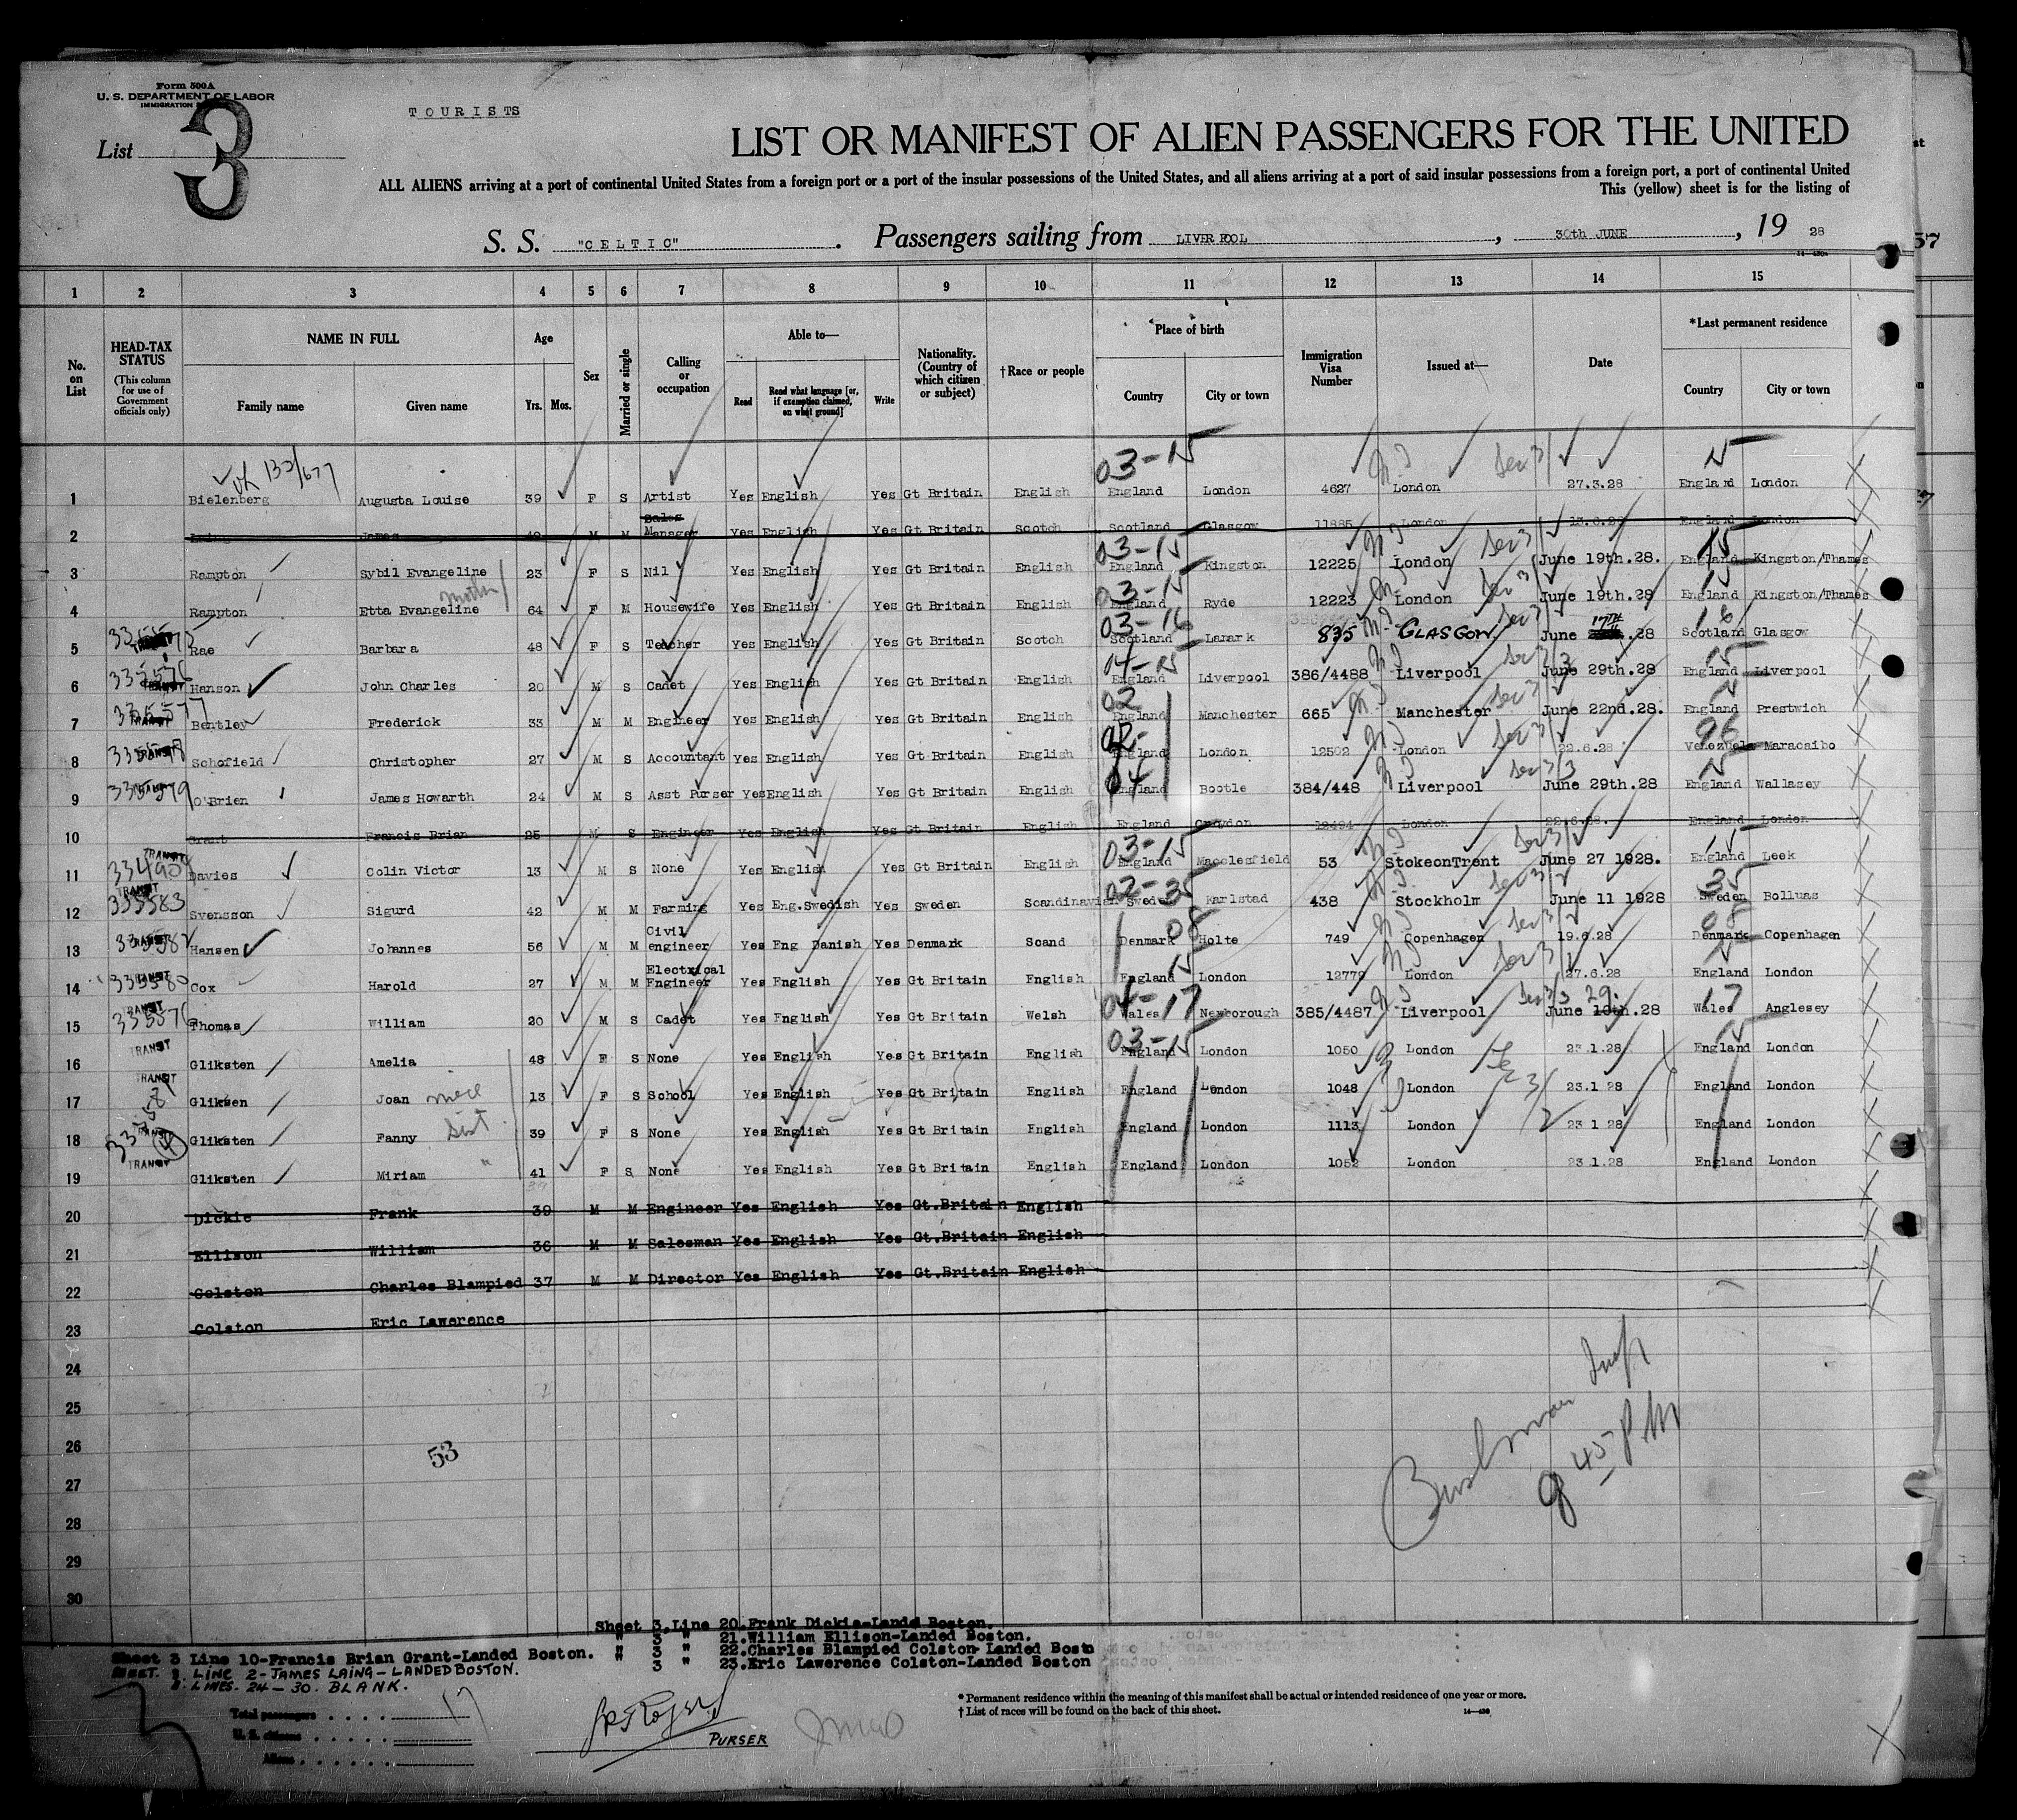 Form 500A
U. S. DEPARTMENT OF LABOR
IMMIGRATION
TOURISTS
List 3
LIST OR MANIFEST OF ALIEN PASSENGERS FOR THE UNITED
ALL ALIENS arriving at a port of continental United States from a foreign port or a port of the insular possessions of the United States, and all aliens arriving at a port of said insular possessions from a foreign port, a port of continental United
This (yellow) sheet is for the listing of
S. S. "CELTIC". Passengers sailing from LIVERPOOL, 30th JUNE, 19 28
1 2 3 4 5 6 7 8 9 10 11 12 13 14 15
No. on List
HEAD-TAX STATUS
(This column for use of Government officials only)
NAME IN FULL
Family name Given name
Age
Yrs. Mos.
Sex
Married or single
Calling or occupation
Able to—
Read Read what language [or, if exemption claimed, on what ground] Write
Nationality. (Country of which citizen or subject)
†Race or people
Place of birth
Country City or town
Immigration Visa Number
Issued at—
Date
*Last permanent residence
Country City or town
1 Bielenberg Augusta Louise 39 F S Artist Yes English Yes Gt Britain English 03-15 England London 4627 London 27.3.28 England London
2 Laing James 42 M M Sales Manager Yes English Yes Gt Britain Scotch Scotland Glasgow 11885 London England London
3 Rampton Sybil Evangeline 23 F S Nil Yes English Yes Gt Britain English 03-15 England Kingston 12225 London June 19th.28. 15 England Kingston/Thames
4 Rampton Etta Evangeline mother 64 F M Housewife Yes English Yes Gt Britain English 03-15 England Ryde 12223 London June 19th.28 15 England Kingston/Thames
5 Rae Barbara 48 F S Teacher Yes English Yes Gt Britain Scotch 03-16 Scotland Lanark 835 GLASGOW. June 17TH .28 16 Scotland Glasgow
6 Hanson John Charles 20 M S Cadet Yes English Yes Gt Britain English 04-15 England Liverpool 386/4488 Liverpool June 29th.28 15 England Liverpool
7 Bentley Frederick 33 M M Engineer Yes English Yes Gt Britain English 02 England Manchester 665 Manchester June 22nd.28. England Prestwich
8 TRANSIT Schofield Christopher 27 M S Accountant Yes English Yes Gt Britain English England London 12502 London 22.6.28 96 Venezuela Maracaibo
9 O'Brien James Howarth 24 M S Asst Purser Yes English Yes Gt Britain English 04 England Bootle 384/448 Liverpool June 29th.28 England Wallasey
10 Grant Francis Brian 25 M S Engineer Yes English Yes Gt Britain English England Croydon 12494 London 22.6.28. England London
11 TRANSIT Davies Colin Victor 13 M S None Yes English Yes Gt Britain English 03-15 England Macclesfield 53 StokeonTrent June 27 1928. England Leek
12 TRANSIT 335583 Svensson Sigurd 42 M M Farming Yes Eng.Swedish Yes Sweden Scandinavian 02-35 Sweden Karlstad 438 Stockholm June 11 1928 35 Sweden Bolluas
13 TRANSIT 335582 Hansen Johannes 56 M M Civil engineer Yes Eng Danish Yes Denmark Scand 08 Denmark Holte 749 Copenhagen 19.6.28 08 Denmark Copenhagen
14 TRANSIT 335580 Cox Harold 27 M M Electrical Engineer Yes English Yes Gt Britain English 15 England London 12779 London 27.6.28 England London
15 TRANSIT 335576 Thomas William 20 M S Cadet Yes English Yes Gt Britain Welsh 04-17 Wales Newborough 385/4487 Liverpool 29. June 10th.28 17 Wales Anglesey
16 TRANSIT Gliksten Amelia 48 F S None Yes English Yes Gt Britain English 03-15 England London 1050 London 23.1.28 15 England London
17 TRANSIT Gliksen Joan niece 13 F S School Yes English Yes Gt Britain English England London 1048 London 23.1 28 England London
18 Gliksten Fanny sist 39 F S None Yes English Yes Gt Britain English England London 1113 London 23 1 28 England London
19 TRANSIT Gliksten Miriam " 41 F S None Yes English Yes Gt Britain English England London 1052 London 23.1.28 England London
20 Dickie Frank 39 M M Engineer Yes English Yes Gt.Britain English
21 Ellison William 36 M M Salesman Yes English Yes Gt.Britain English
22 Colston Charles Blampied 37 M M Director Yes English Yes Gt.Britain English
23 Colston Eric Lawerence
24
25
26
27
28
29
30
53
9 45 P.M
Sheet 3 Line 20.Frank Dickie-Landd Boston.
" 3 " 21.William Ellison-Landed Boston.
" 3 " 22.Charles Blampied Colston-Landed Bosto
3 " 23.Eric Lawerence Colston-Landed Boston
Sheet 3 Line 10-Francis Brian Grant-Landed Boston.
SHEET. 3. LINE 2-JAMES LAING-LANDED BOSTON.
3. LINES. 24-30. BLANK.
Total passengers 17
U. S. citizens
Aliens
PURSER
* Permanent residence within the meaning of this manifest shall be actual or intended residence of one year or more.
† List of races will be found on the back of this sheet.